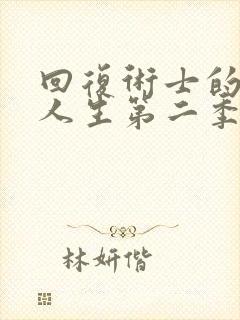 回復術士的
人生第二季
林妍偕